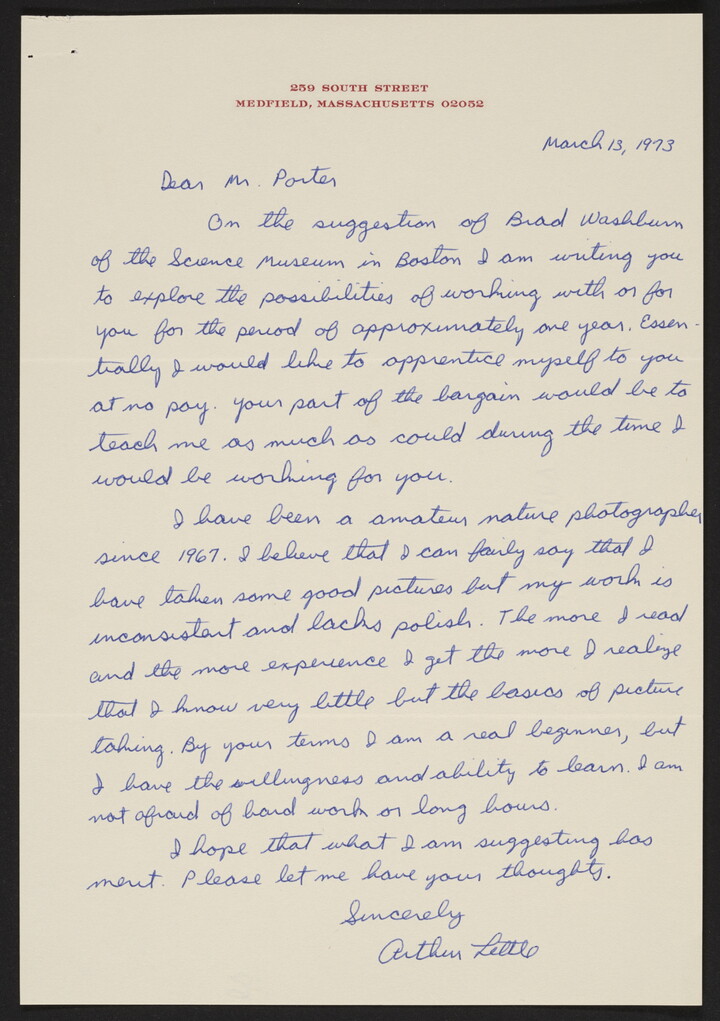 259 SOUTH STREET
MEDFIELD, MASSACHUSETTS 02052
March 13, 1973
Dear Mr. Porter
On the suggestion of Brad Washburn
of the Science Museum in Boston I am writing you
to explore the possibilities of working with or for
you for the period of approximately one year. Essen-
tially I would like to apprentice myself to you
at no pay. Your part of the bargain would be to
teach me as much as could during the time I
would be working for you.
I have been a amateur nature photographer
since 1967. I believe that I can fairly say that I
have taken some good pictures but my work is
inconsistent and lacks polish. The more I read
and the more experience I get the more I realize
that I know very little but the basics of picture
taking. By your terms I am a real beginner, but
I have the willingness and ability to learn. I am
not afraid of hard work or long hours.
I hope that what I am suggesting has
merit. Please let me have your thoughts.
Sincerely
Arthur Little